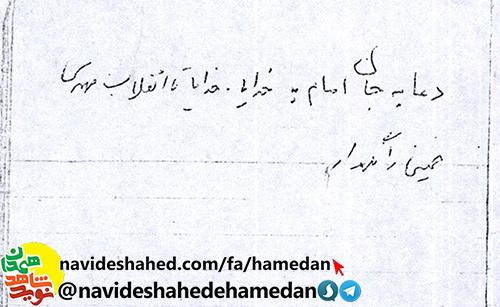 دعا به جان امام به خدایا. خدایا تا انقلاب مهدی
خمینی را نگهدار
navideshahed.com/fa/hamedan
@navideshahedehamedan
نوید شاهد همدان